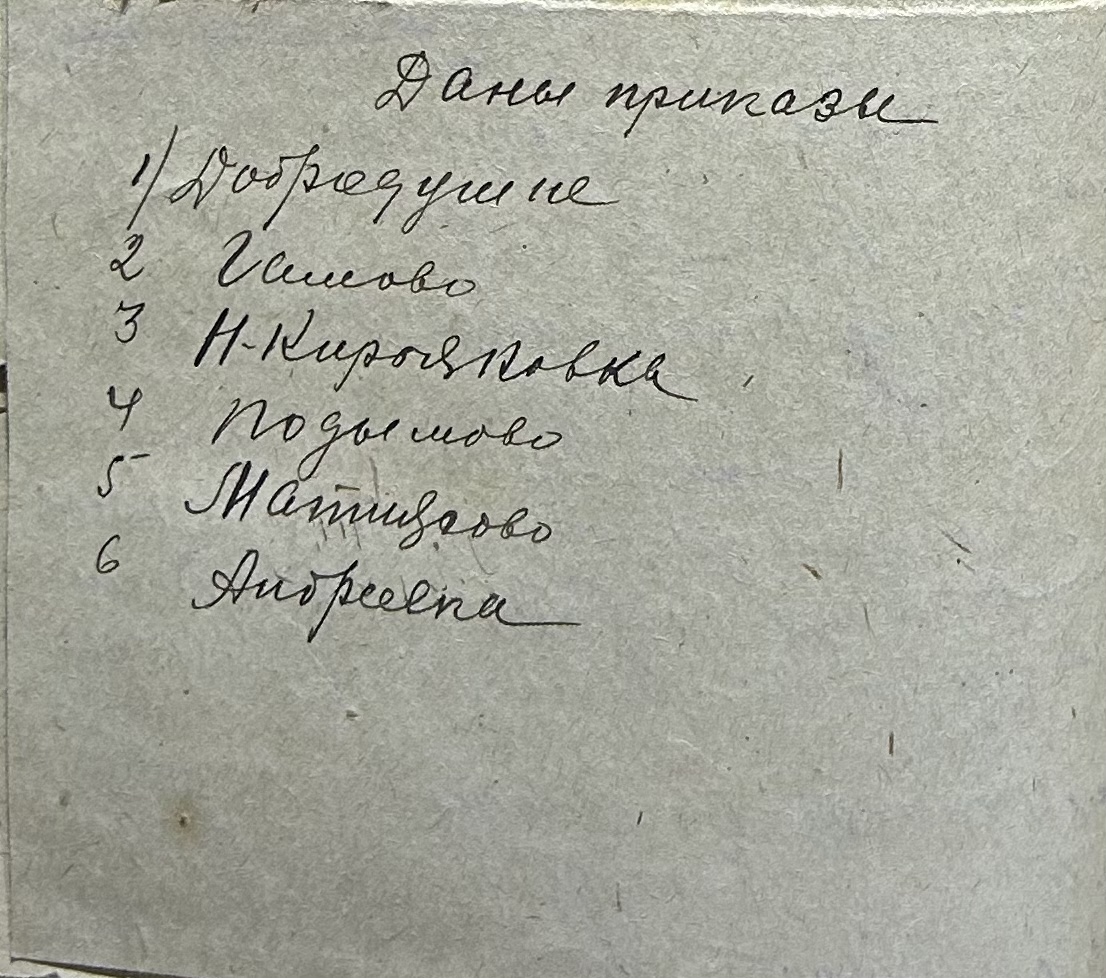 Даны приказы
1) Добродушие
2 Гамово
3 Н-Кирьяковка
4 Подымово
5 Матиясово
6 Андреевка